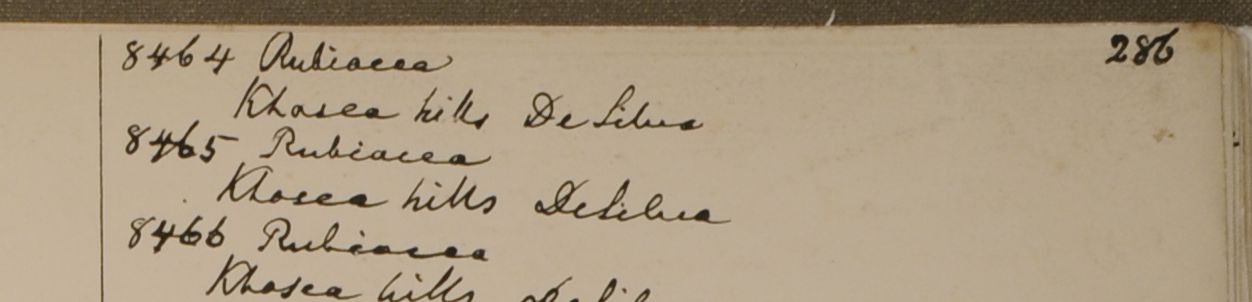 286
8464 Rubiacea
Khasea hills De Silva
8465 Rubiacea
Khasea hills DeSilva
8466 Rubiacea
Khasea hills DeSilva